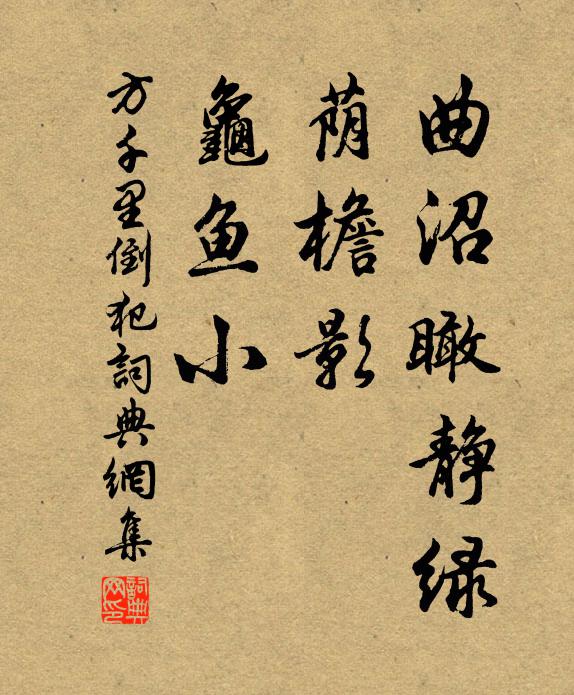 曲沼瞰静绿
荫檐影
龜鱼小
方千里倒犯詞典網集
詞典网印